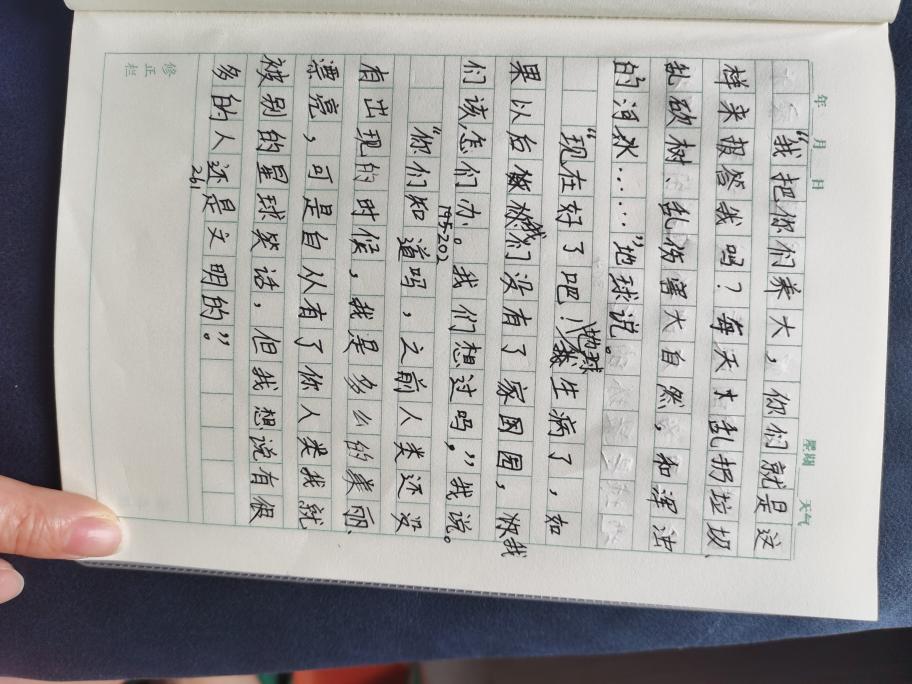 年 月 日 星期 天气
“我把你们养大，你们就是这
样来报答我吗？每天大乱扔垃圾、
乱砍树、乱伤害大自然，和浑浊
的河水……”地球说。
“现在好了吧！地球生病了，如
果以后我们没有了家园，你我
们该怎们办。我们想过吗，”我说。
175-202
“你们知道吗，之前人类还没
有出现的时候，我是多么的美丽、
漂亮，可是自从有了你人类我就
被别的星球笑话，但我想说有很
多的人还是文明的”。
261
修正栏